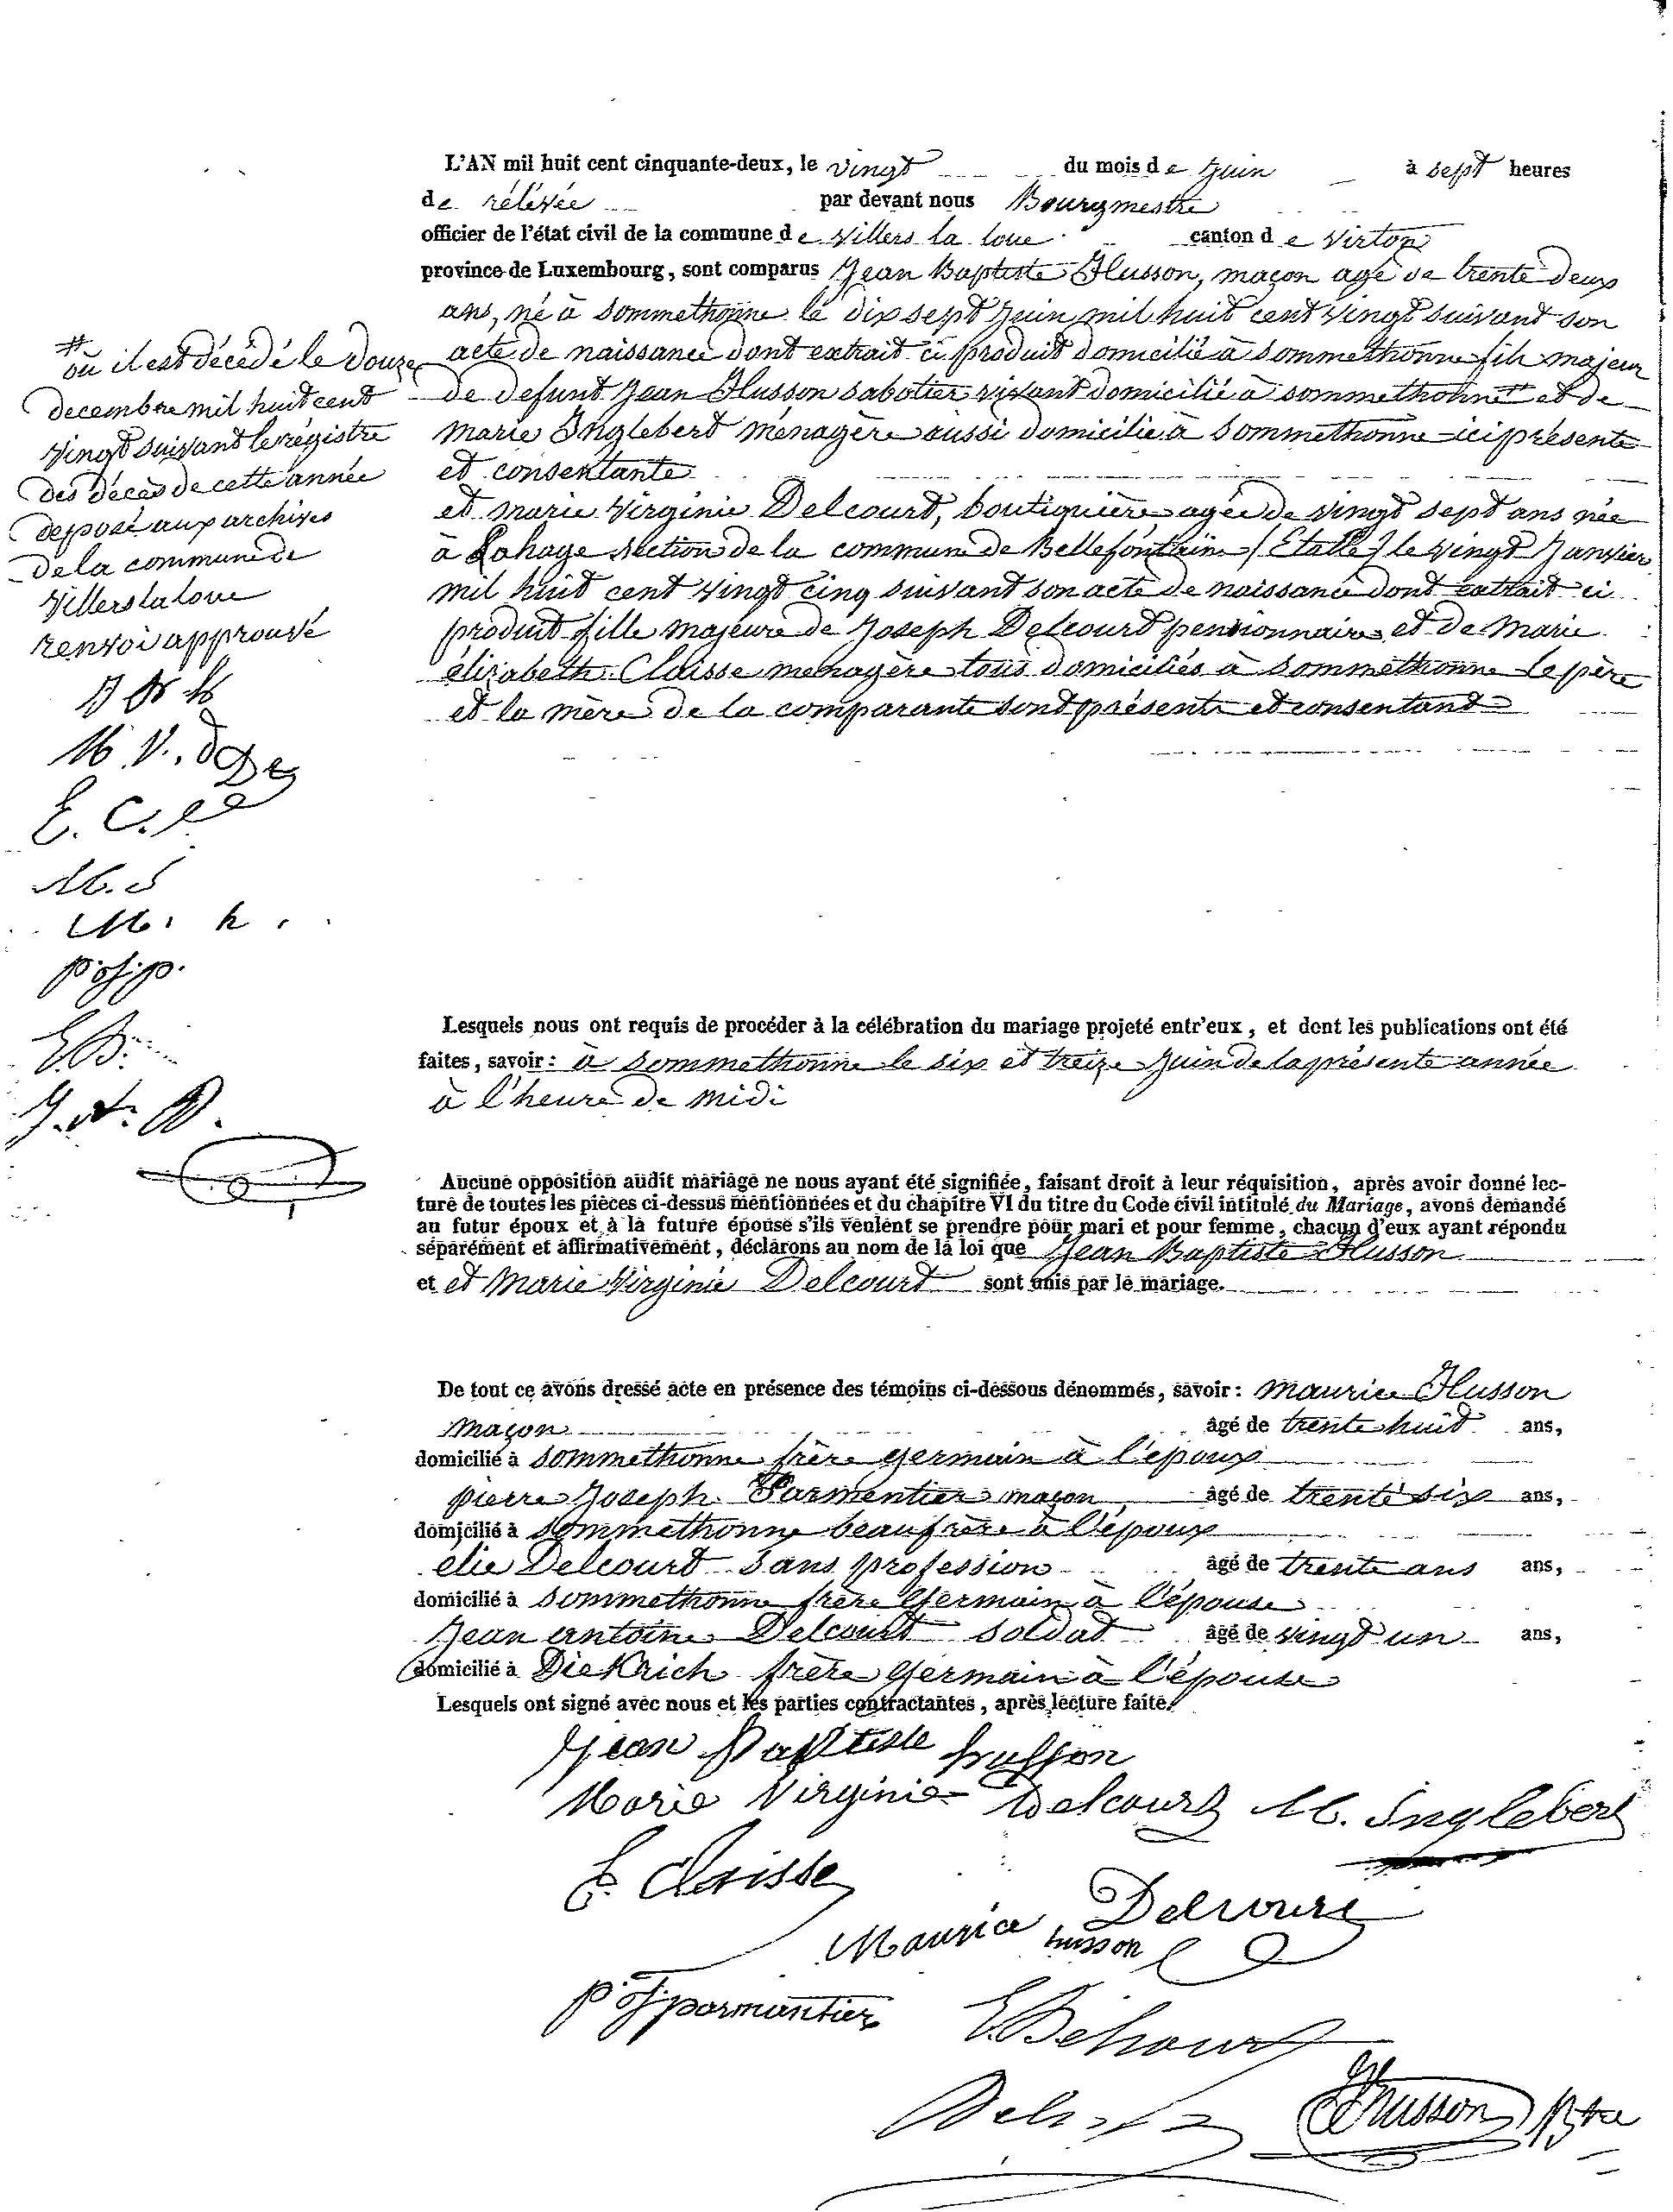 L'AN mil huit cent cinquante-deux, le vingt du mois de Juin à sept heures
de rélévée par devant nous Bourgmestre
officier de l'état civil de la commune de Villers la loue canton de Virton
province de Luxembourg, sont comparus Jean Baptiste Husson, maçon agé de trente deux
ans, né à Sommethonne le dix sept Juin mil huit cent vingt suivant son
acte de naissance dont extrait ci produit domicilié à Sommethonne fils majeur
de defunt Jean Husson sabotier vivant domicilié à Sommethonne # et de
Marie Inglebert ménagère aussi domicilié à Sommethonne ici présente
et consentante
et Marie Virginie Delcourt, boutiquière agée de vingt sept ans née
à Lahage section de la commune de Bellefontaine (Etalle) le vingt Janvier
mil huit cent vingt cinq suivant son acte de naissance dont extrait ci
produit fille majeure de Joseph Delcourt pensionnaire et de Marie
élizabeth Claisse menagère tous domiciliés à Sommethonne le père
et la mère de la comparante sont présents et consentant
#
où il est décédé le douze
decembre mil huit cent
vingt suivant le régistre
des décès de cette année
deposé aux archives
de la commune de
Villers la loue
renvoi approuvé
M. V. D
E. C.
M. J
M. h.
p. j. p.
E D.
J. A. D.
Lesquels nous ont requis de procéder à la célébration du mariage projeté entr'eux, et dont les publications ont été
faites, savoir: à Sommethonne le six et treize Juin de la présente année
à l'heure de midi
Aucune opposition audit mariage ne nous ayant été signifiée, faisant droit à leur réquisition, après avoir donné lec-
ture de toutes les pièces ci-dessus mentionnées et du chapitre VI du titre du Code civil intitulé du Mariage, avons demandé
au futur époux et à la future épouse s'ils veulent se prendre pour mari et pour femme, chacun d'eux ayant répondu
séparément et affirmativement, déclarons au nom de la loi que Jean Baptiste Husson
et et Marie Virginie Delcourt sont unis par le mariage.
De tout ce avons dressé acte en présence des témoins ci-dessous dénommés, savoir: Maurice Husson
Maçon âgé de trente huit ans,
domicilié à Sommethonne frère germain à l'époux
pierre Joseph Parmentier maçon, âgé de trente six ans,
domicilié à Sommethonne beaufrère à l'époux
élie Delcourt Sans profession âgé de trente ans ans,
domicilié à Sommethonne frère Germain à l'épouse
Jean antoine Delcourt soldat âgé de vingt un ans,
domicilié à Diekrich frère Germain à l'épouse
Lesquels ont signé avec nous et les parties contractantes, après lecture faite.
Jean Baptiste husson
Marie Virginie Delcourt M. Inglebert
E. Claisse
Delcourt
Maurice husson
p j parmentier
E Delcourt
Husson Bstre